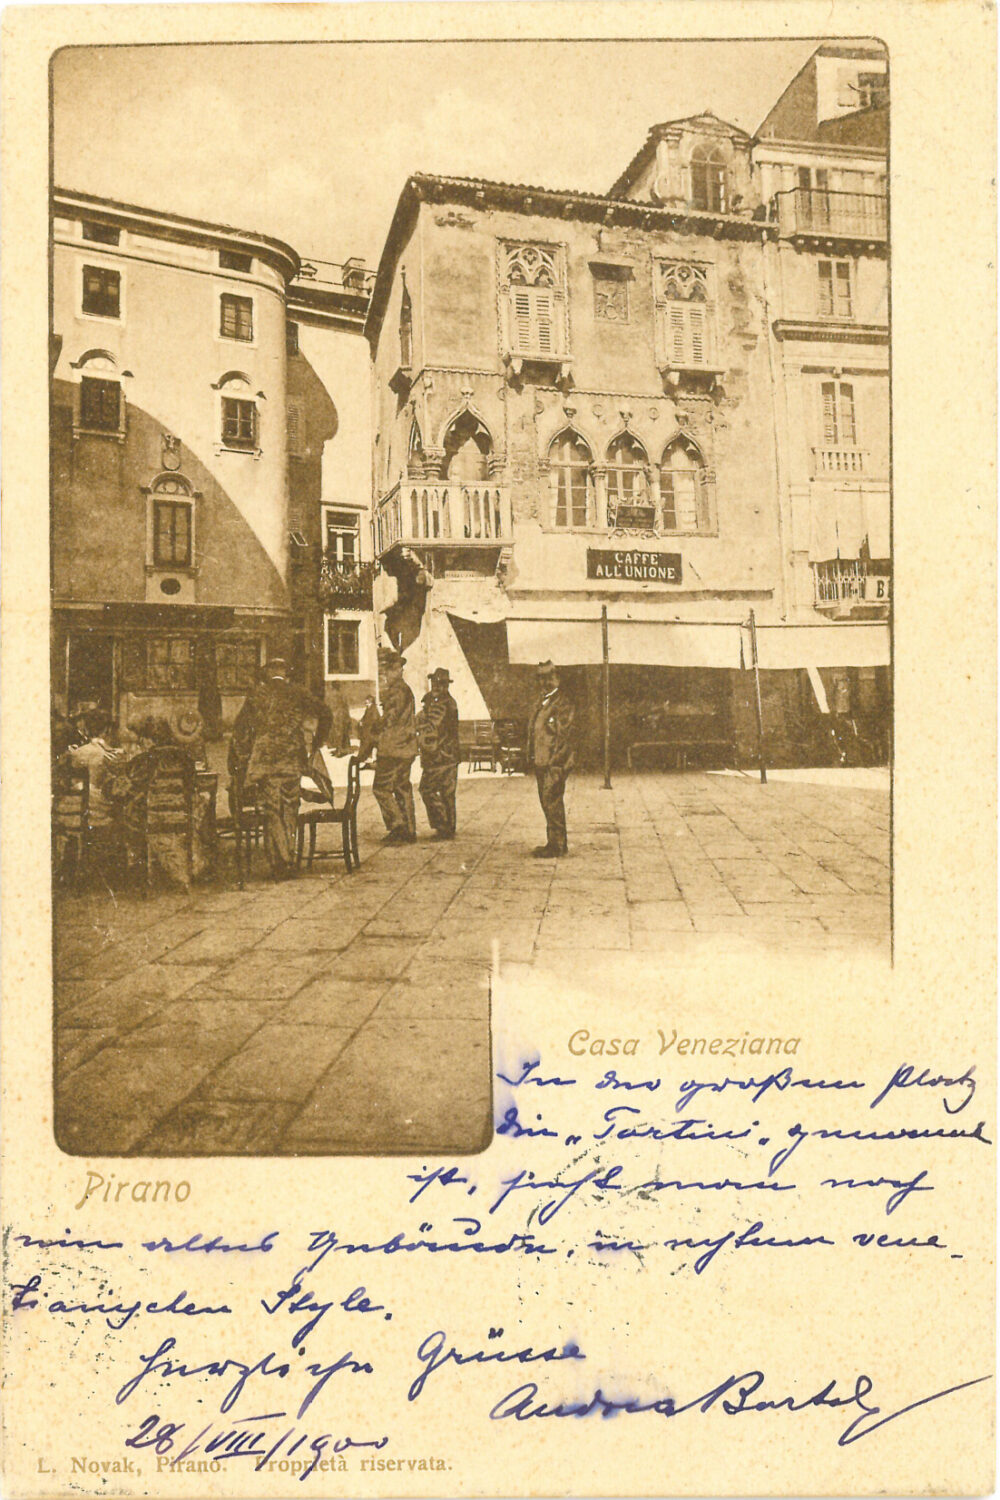 CAFFE
ALL'UNIONE
B
Casa Veneziana
In der großen Platz
die „Tartini„ genannt
ist, sieht man noch
Pirano
ein altes Gebäude, in echtem vene-
tianischen Style.
Herzliche Grüsse
Andrea Bartol
28/VIII/1900
L. Novak, Pirano. Proprietà riservata.